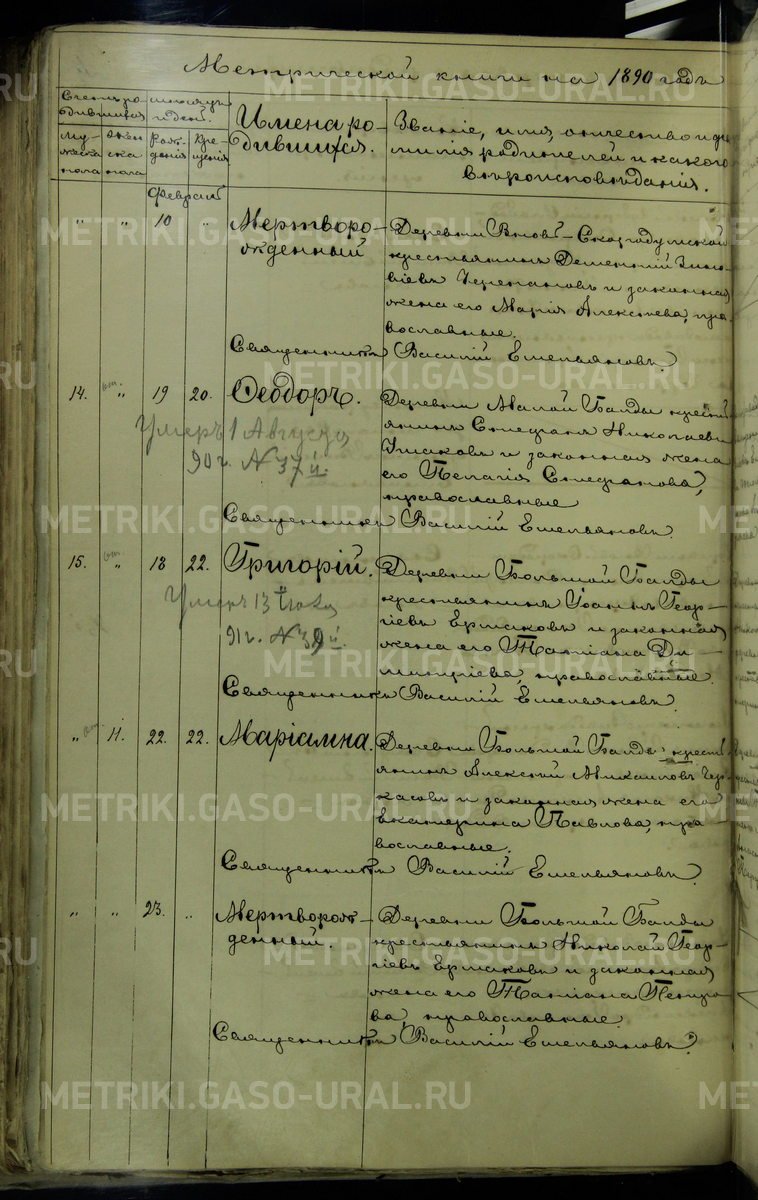 Метрической книги на 1890 годъ
Счетъ ро-
дившихся
Мѣсяцъ
и день.
Имена ро-
дившихся.
Званіе, имя, отчество и фа-
милія родителей и какого
вѣроисповѣданія.
му-
жеска
пола
жен-
ска
пола
Рож-
денія
Кре-
щенія
Февраль
" " 10 " Мертворо-
жденный
Деревни
крестьянинъ Дементій Зино-
віевъ Черепановъ и законная
жена его Марія Алексѣева, пра-
вославные.
Священникъ Василій Емельяновъ.
14. " 19 20. Ѳеодоръ.
Деревни Малой Балды кресть-
янинъ Стефанъ Николаевъ
Ушаковъ и законная жена
его Пелагія Стефанова,
православные
Умеръ 1 Августа
90 г. № 37й.
Священникъ Василій Емельяновъ.
15. " 18 22. Григорій.
Деревни Большой Балды
крестьянинъ Іоаннъ Геор-
гіевъ Ермаковъ и законная
жена его Татіана Ди-
митріева, православные.
Умеръ 13
91 г. № 39й.
Священникъ Василій Емельяновъ.
" 11. 22. 22. Маріамна.
Деревни Большой Балды кресть-
янинъ Алексій Михаиловъ Чер-
касовъ и законная жена его
Екатерина Павлова, пра-
вославные.
Священникъ Василій Емельяновъ.
" " 23. " Мертворож-
денный.
Деревни Большой Балды
крестьянинъ Николай Геор-
гіевъ Ермаковъ и законная
жена его Татіана Петро-
ва, православные.
Священникъ Василій Емельяновъ.
METRIKI.GASO-URAL.RU